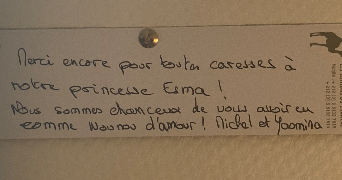 Merci encore pour toutes caresses à
notre princesse Esma !
Nous sommes chanceux de vous avoir eu
comme Nounou d'amour ! Michel et Yasmina